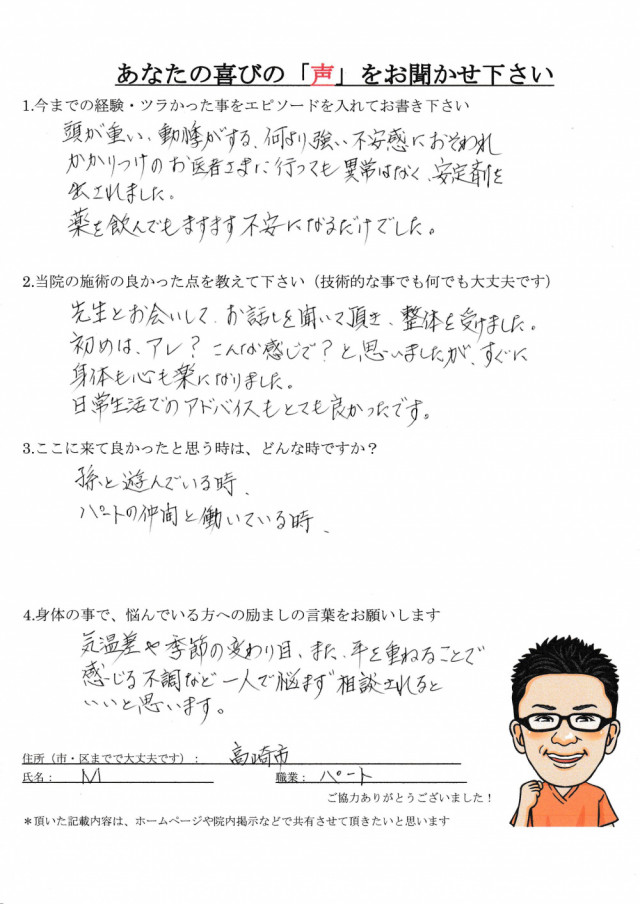 あなたの喜びの「声」をお聞かせ下さい
1.今までの経験・ツラかった事をエピソードを入れてお書き下さい
頭が重い、動悸がする、何より、強い不安感におそわれ
かかりつけのお医者さまに行っても異常はなく、安定剤を
出されました。
薬を飲んでもますます不安になるだけでした。
2.当院の施術の良かった点を教えて下さい（技術的な事でも何でも大丈夫です）
先生とお会いして、お話しを聞いて頂き、整体を受けました。
初めは、アレ？こんな感じで？と思いましたが、すぐに
身体も心も楽になりました。
日常生活でのアドバイスもとても良かったです。
3.ここに来て良かったと思う時は、どんな時ですか？
孫と遊んでいる時、
パートの仲間と働いている時、
4.身体の事で、悩んでいる方への励ましの言葉をお願いします
気温差や季節の変わり目、また、年を重ねることで
感じる不調など一人で悩まず相談されると
いいと思います。
住所（市・区までで大丈夫です）： 高崎市
氏名： M 職業： パート
ご協力ありがとうございました！
＊頂いた記載内容は、ホームページや院内掲示などで共有させて頂きたいと思います